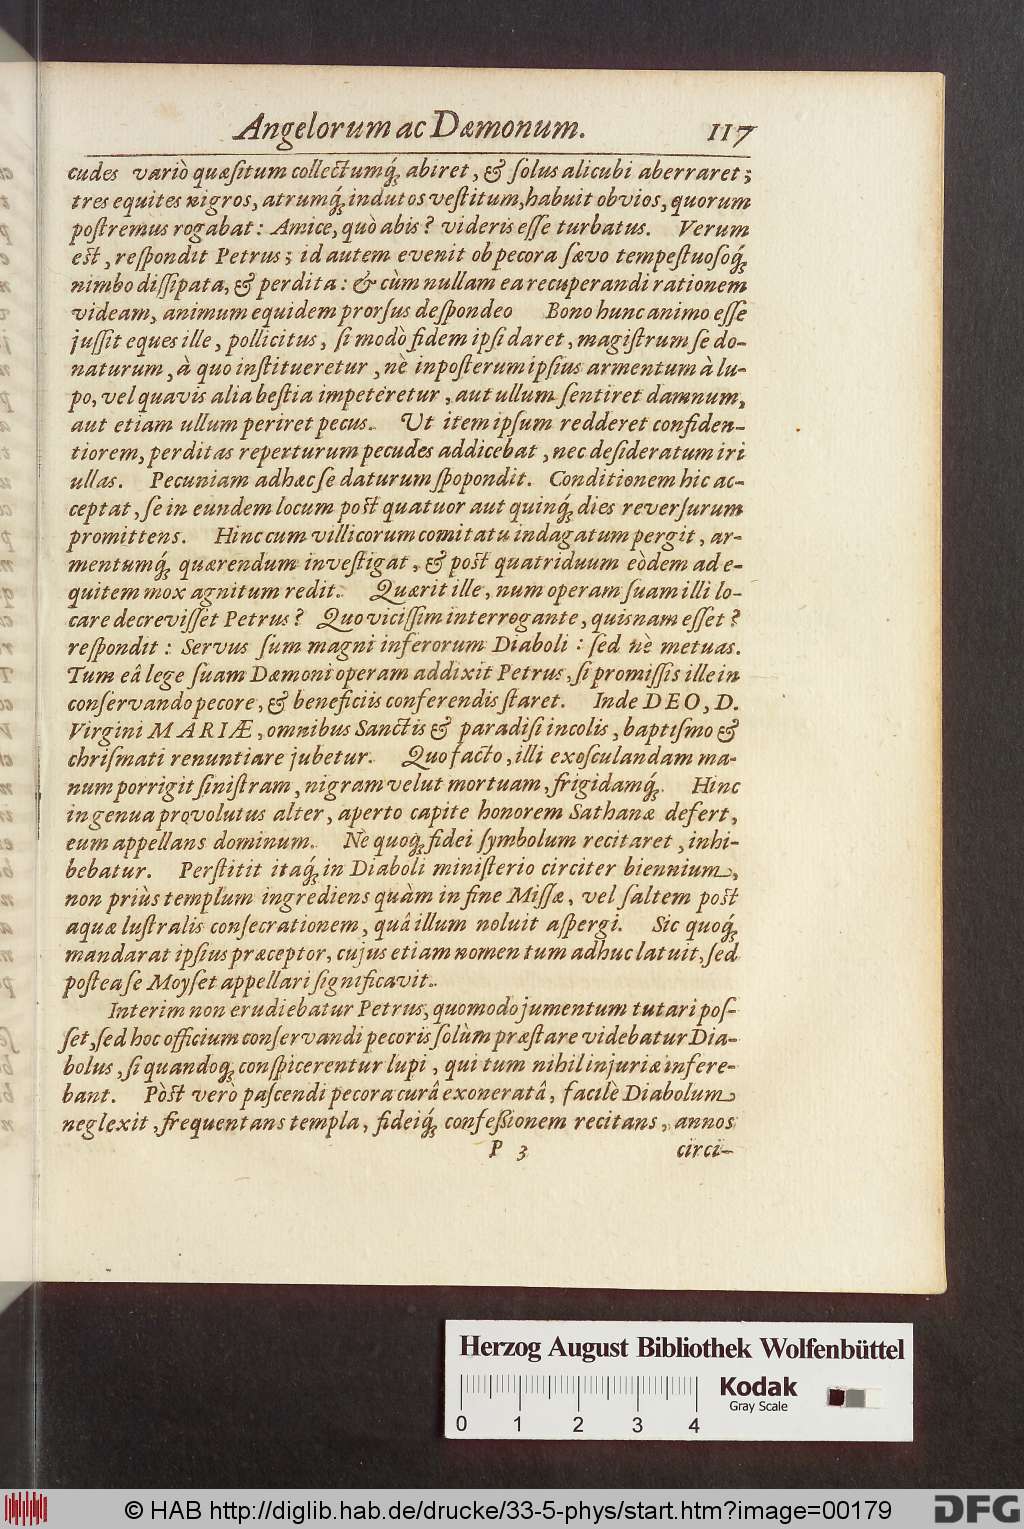 Angelorum ac Dæmonum. 117
cudes variò quæsitum collectumq́; abiret, & solus alicubi aberraret;
tres equites nigros, atrumq́; indutos vestitum, habuit obvios, quorum
postremus rogabat: Amice, quò abis? videris esse turbatus. Verum
est, respondit Petrus; id autem evenit ob pecora sævo tempestuosoq́;
nimbo dissipata, & perdita: & cùm nullam ea recuperandi rationem
videam, animum equidem prorsus despondeo Bono hunc animo esse
jussit eques ille, pollicitus, si modò fidem ipsi daret, magistrum se do-
naturum, à quo institueretur, nè inposterum ipsius armentum à lu-
po, vel quavis alia bestia impeteretur, aut ullum sentiret damnum,
aut etiam ullum periret pecus. Ut item ipsum redderet confiden-
tiorem, perditas reperturum pecudes addicebat, nec desideratum iri
ullas. Pecuniam adhæc se daturum spopondit. Conditionem hic ac-
ceptat, se in eundem locum post quatuor aut quinq́; dies reversurum
promittens. Hinc cum villicorum comitatu indagatum pergit, ar-
mentumq́; quærendum investigat, & post quatriduum eòdem ad e-
quitem mox agnitum redit. Quærit ille, num operam suam illi lo-
care decrevisset Petrus? Quo vicissim interrogante, quisnam esset?
respondit: Servus sum magni inferorum Diaboli: sed nè metuas.
Tum eâ lege suam Dæmoni operam addixit Petrus, si promissis ille in
conservando pecore, & beneficiis conferendis staret. Inde DEO, D.
Virgini MARIÆ, omnibus Sanctis & paradisi incolis, baptismo &
chrismati renuntiare jubetur. Quo facto, illi exosculandam ma-
num porrigit sinistram, nigram velut mortuam, frigidamq́;. Hinc
in genua provolutus alter, aperto capite honorem Sathanæ defert,
eum appellans dominum. Ne quoq́; fidei symbolum recitaret, inhi-
bebatur. Perstitit itaq́; in Diaboli ministerio circiter biennium,
non priùs templum ingrediens quàm in fine Missæ, vel saltem post
aquæ lustralis consecrationem, quâ illum noluit aspergi. Sic quoq́;
mandarat ipsius præceptor, cujus etiam nomen tum adhuc latuit, sed
postea se Moyset appellari significavit.
Interim non erudiebatur Petrus, quomodo jumentum tutari pos-
set, sed hoc officium conservandi pecoris solùm præstare videbatur Dia-
bolus, si quandoq́; conspicerentur lupi, qui tum nihil injuriæ infere-
bant. Pòst verò pascendi pecora curâ exoneratâ, facilè Diabolum
neglexit, frequentans templa, fideiq́; confessionem recitans, annos
P 3 circi-
Herzog August Bibliothek Wolfenbüttel
Kodak
Gray Scale
0 1 2 3 4
© HAB http://diglib.hab.de/drucke/33-5-phys/start.htm?image=00179
DFG